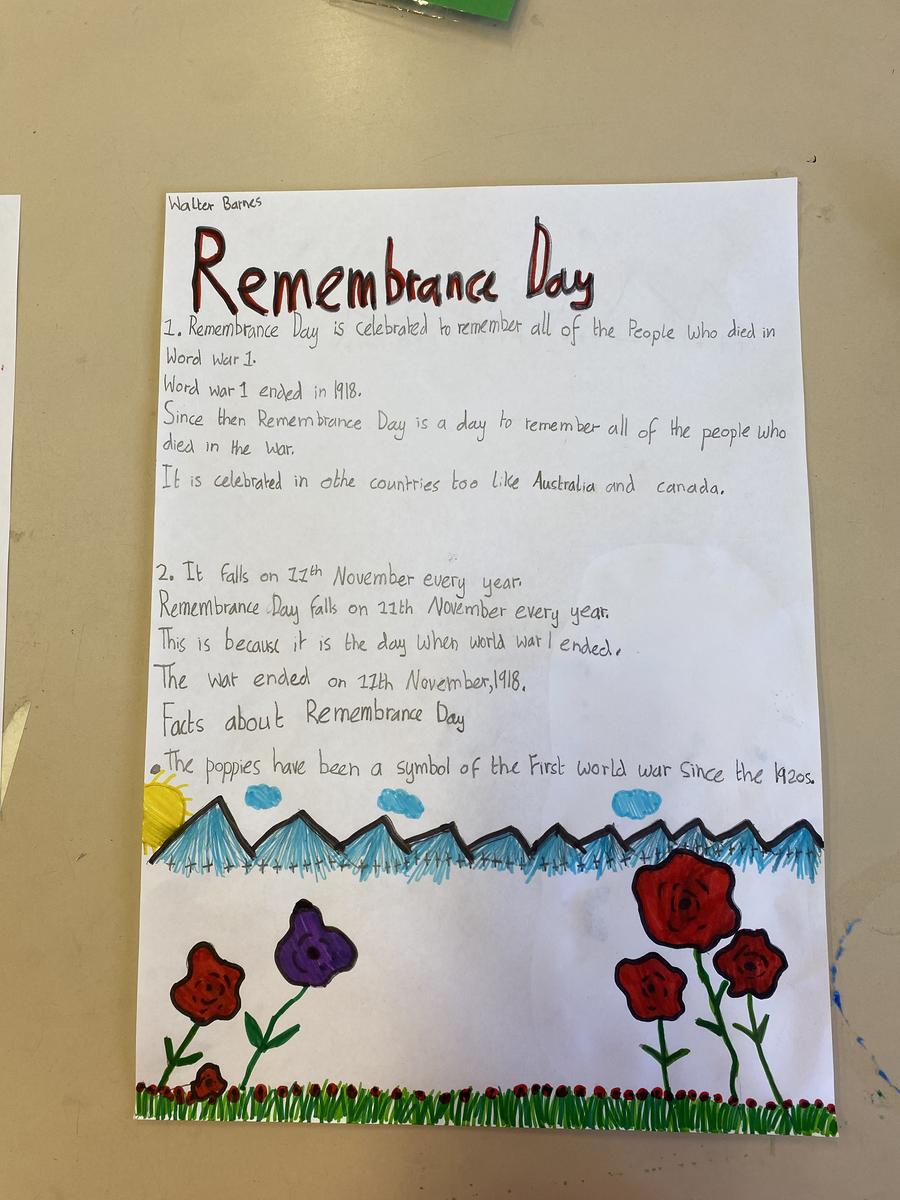 Walter Barnes
Remembrance Day
1. Remembrance Day is celebrated to remember all of the People who died in
Word war 1.
Word war 1 ended in 1918.
Since then Remembrance Day is a day to remember all of the people who
died in the war.
It is celebrated in othe countries too like Australia and canada.
2. It falls on 11th November every year.
Remembrance Day falls on 11th November every year.
This is because it is the day when world war 1 ended.
The war ended on 11th November, 1918.
Facts about Remembrance Day
• The poppies have been a symbol of the First world war since the 1920s.